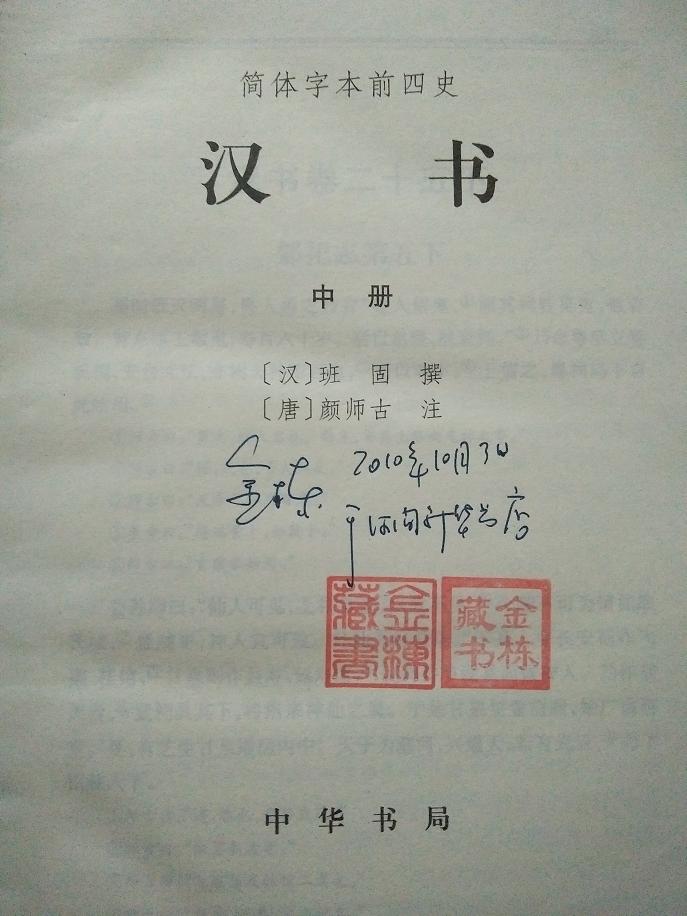 简体字本前四史
汉 书
中 册
〔汉〕班 固 撰
〔唐〕颜师古 注
金栋 2010年10月3日
于河间新华书店
金棟藏書
金栋藏书
中华书局